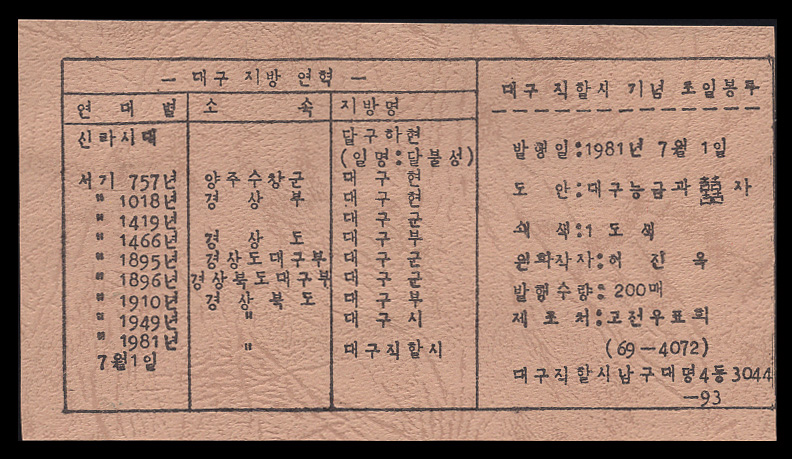 — 대구 지방 연혁 —
연 대 별 소 속 지방명
신라시대 달구하현
(일명:달불성)
서기 757년 양주수창군 대 구 현
〃 1018년 경 상 부 대 구 현
〃 1419년 대 구 군
〃 1466년 경 상 도 대 구 부
〃 1895년 경상도대구부 대 구 군
〃 1896년 경상북도대구부 대 구 군
〃 1910년 경 상 북 도 대 구 부
〃 1949년 〃 대 구 시
〃 1981년 〃 대구직할시
7월1일
대구 직할시 기념 초일봉투
발행일:1981년 7월 1일
도 안:대구능금과 囍 자
쇄 색:1 도 색
원화작자:허 진 욱
발행수량: 200매
제 조 처:고전우표회
(69—4072)
대구직할시남구대명4동3044
—93